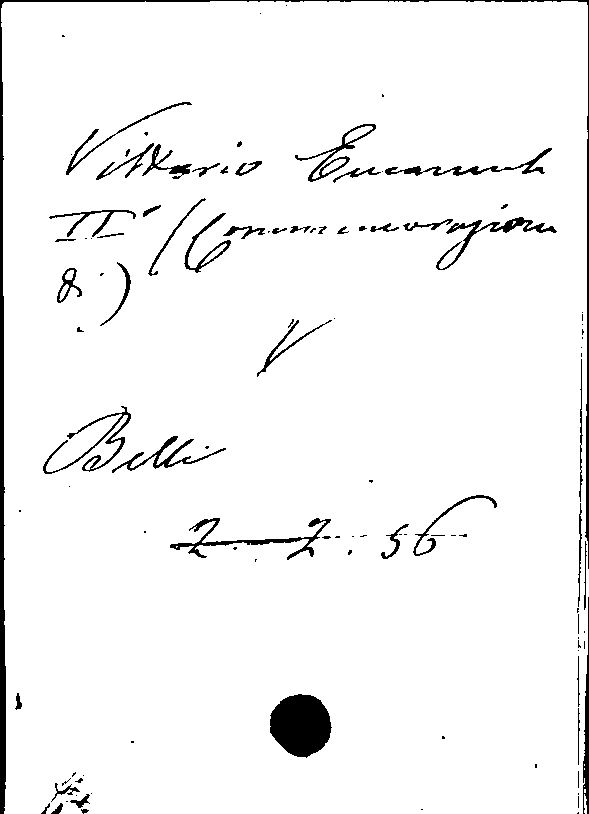 Vittorio Emanuele
II° (Commemorazione
di)
V
Belli
2. 2. 56